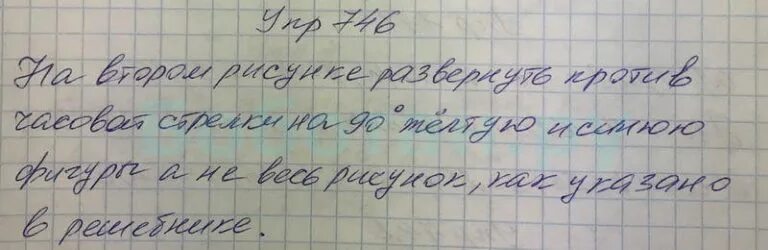 Упр 746
На втором рисунке развернуть против
часовой стрелки на 90° жёлтую и синюю
фигуры а не весь рисунок, как указано
в решебнике.